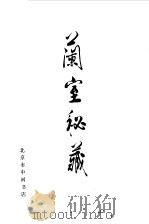 蘭室秘藏
北京市中国书店